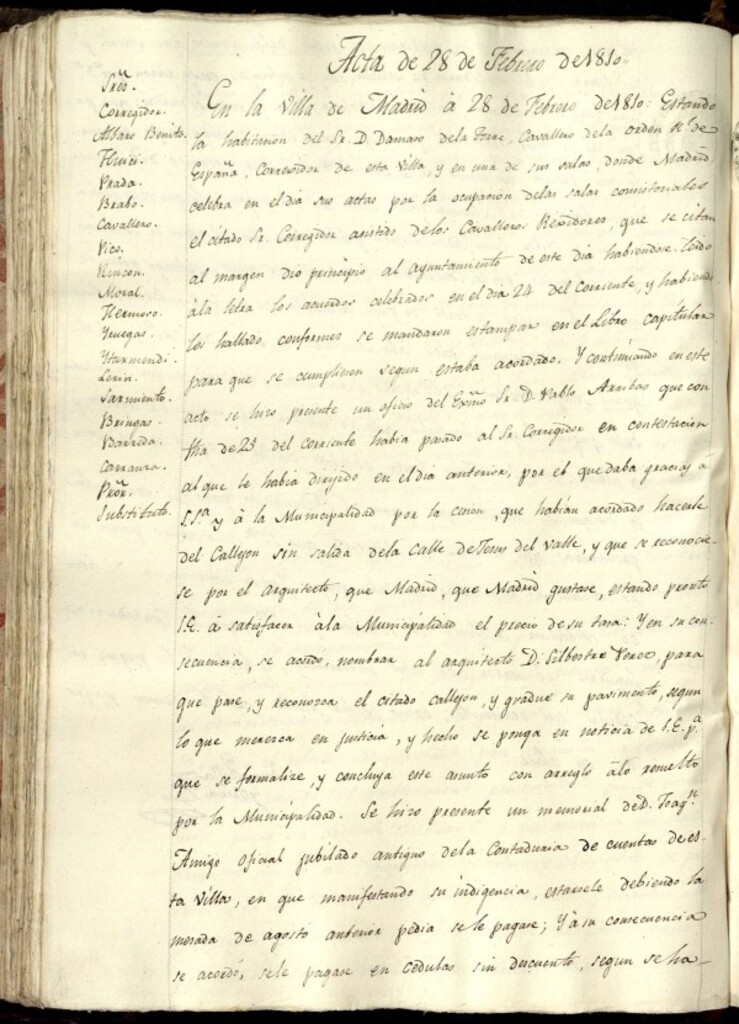 Acta de 28 de Febrero de 1810.
Sres.
Corregidor.
Alfaro Benito.
Prada.
Brabo.
Cavallero.
Pico.
Rincon.
Moral.
Hermoso.
Yturmendi.
Lerin.
Sarmiento.
Bringas.
Barreda.
Carranza.
Pror.
Substituto.
En la Villa de Madrid à 28 de Febrero de 1810: Estando
la habitacion del Sr. D. Damaso dela Torre, Cavallero dela orden Rl. de
España, Corregidor de esta Villa, y en una de sus salas, donde Madrid
celebra en el dia sus actas por la ocupacion delas salas consistoriales
el citado Sr. Corregidor asistido delos Cavalleros Regidores, que se citan
al margen dio principio al ayuntamiento de este dia habiendose leido
àla letra los acuerdos celebrados en el dia 24 del corriente, y habiendo
los hallado conformes se mandaron estampar en el Libro capitular
para que se cumpliesen segun estaba acordado. Y continuando en este
acto se hizo presente un oficio del Exmo Sr. D. Pablo Arribas que con
fha de 23 del corriente habia pasado al Sr. Corregidor en contestacion
al que le habia dirijido en el dia anterior, por el que daba gracias a
S.Sa. y à la Municipalidad por la cesion, que habian acordado hacerle
del Callejon sin salida dela calle de Jesus del Valle, y que se reconocie-
se por el arquitecto, que Madrid, que Madrid gustase, estando pronto
S.E. à satisfacer àla Municipalidad el precio de su tasa: Y en su con-
secuencia, se acordó, nombrar al arquitecto D. Silbestre Perez, para
que pase, y reconozca el citado callejon, y gradue su pavimento, segun
lo que merezca en justicia, y hecho se ponga en noticia de S.E. pa.
que se formalize, y concluya este asunto con arreglo àlo resuelto
por la Municipalidad. Se hizo presente un memorial de D. Joaqn.
Amigo oficial jubilado antiguo dela Contaduria de cuentas de es-
ta Villa, en que manifestando su indigencia, estarsele debiendo la
mesada de agosto anterior pedia se le pagase; Y à su consecuencia
se acordó, sele pagase en cedulas sin descuento, segun se ha-